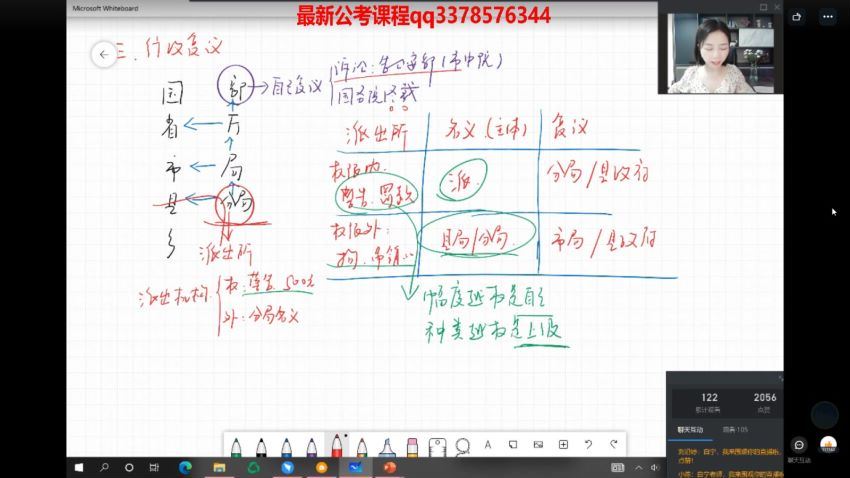 最新公考课程qq3378576344
Microsoft Whiteboard
三、行政复议
国 部 → 自己复议
诉讼:告公安部(市中院)
国务院区裁
省 ← 厅
市 ← 局
县 ← 分局
乡
派出所
派出机构
权:警告、500元
外:分局名义
派出所 名义(主体) 复议
权限内: 警告、罚款 派 分局/县政府
权限外: 拘、吊销 县局/分局 市局/县政府
幅度越权是自己
种类越权是上级
122 2056
累计观看 点赞
聊天互动 观看·105
聊天互动